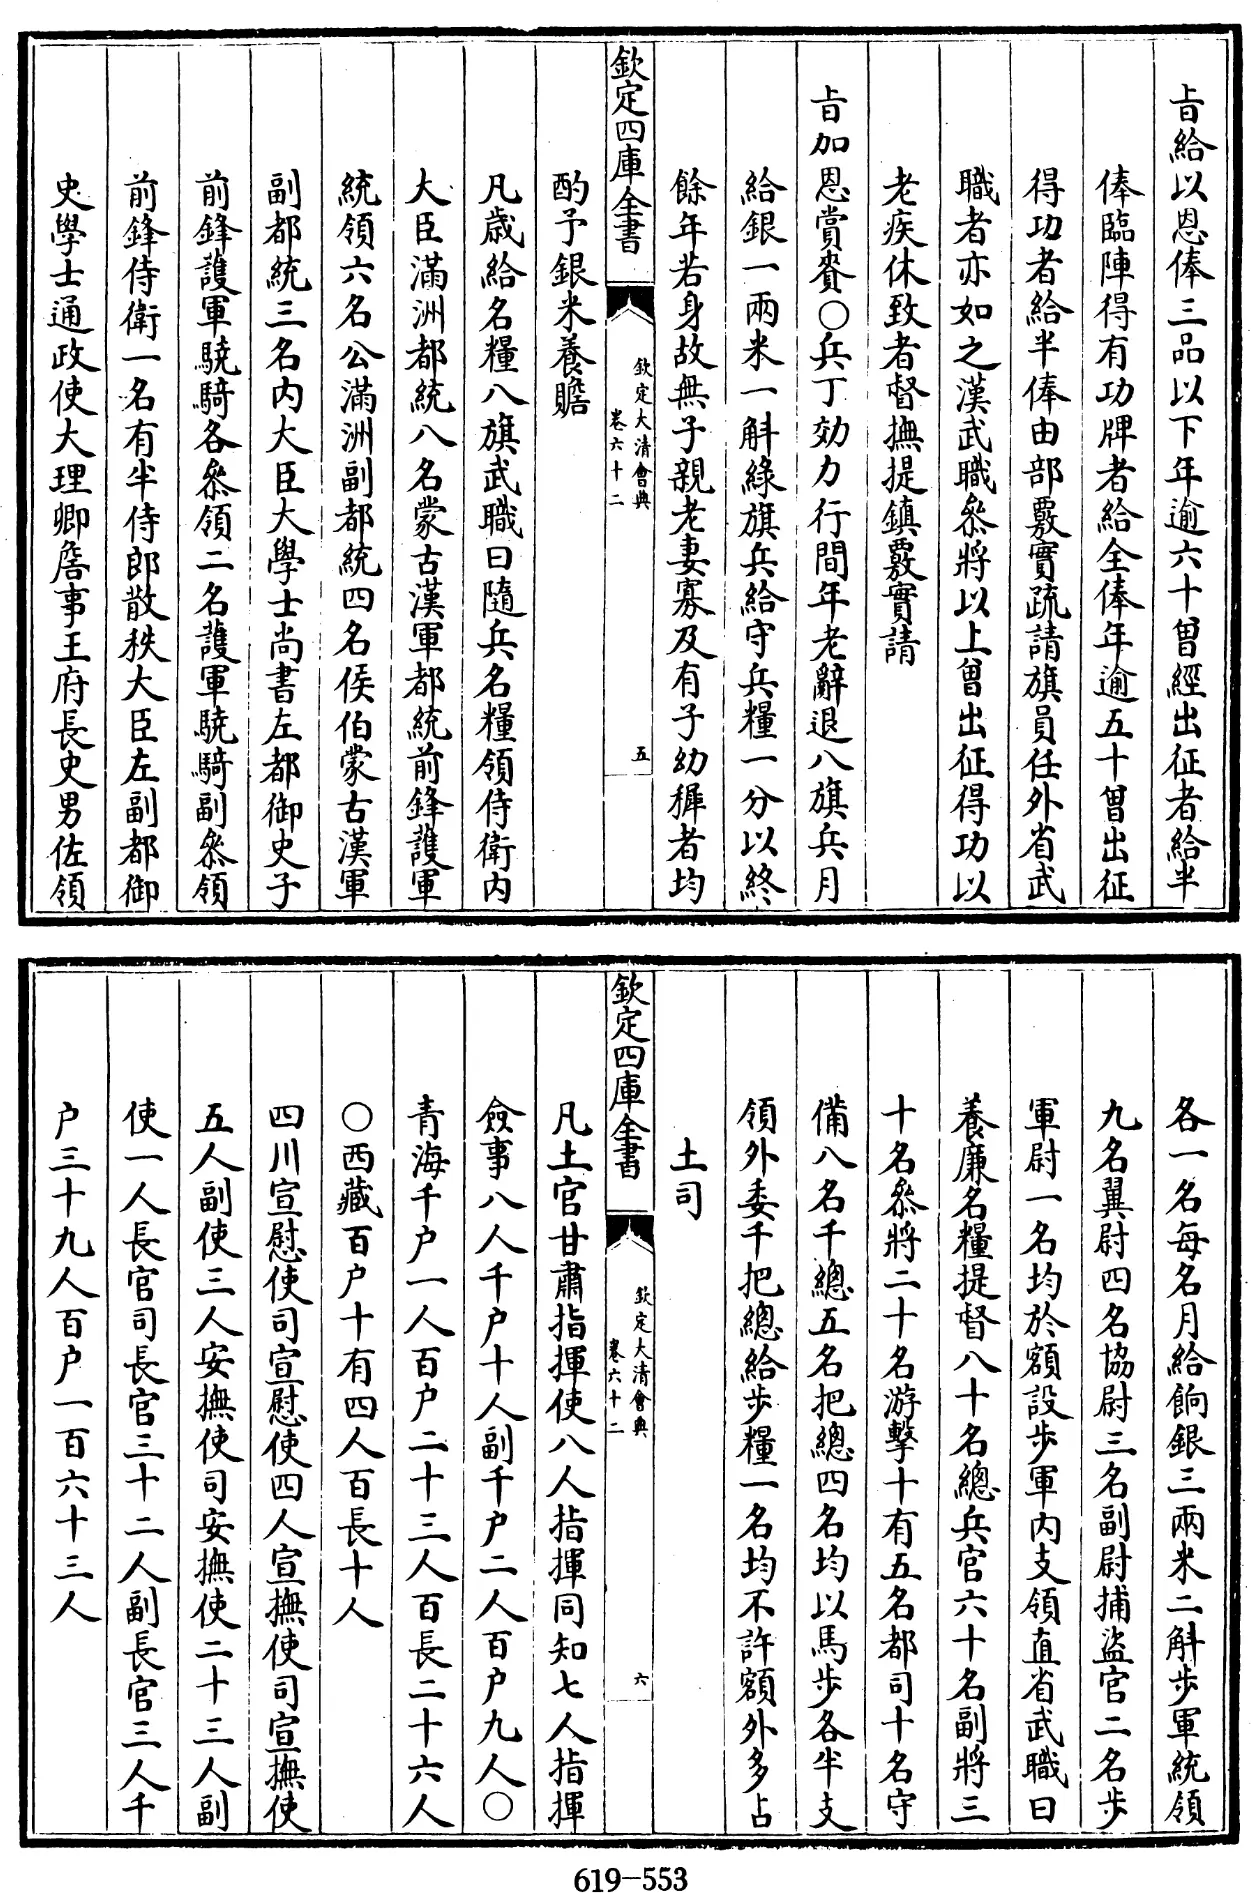 旨給以恩俸三品以下年逾六十曾經出征者給半
俸臨陣得有功牌者給全俸年逾五十曾出征
得功者給半俸由部覈實疏請旗員任外省武
職者亦如之漢武職叅將以上曾出征得功以
老疾休致者督撫提鎮覈實請
旨加恩賞賚○兵丁効力行間年老辭退八旗兵月
給銀一兩米一斛綠旗兵給守兵糧一分以終
餘年若身故無子親老妻寡及有子幼穉者均
欽定四庫全書
欽定大清會典
卷六十二
五
酌予銀米養贍
凡歳給名糧八旗武職曰隨兵名糧領侍衛内
大臣滿洲都統八名蒙古漢軍都統前鋒護軍
統領六名公滿洲副都統四名侯伯蒙古漢軍
副都統三名内大臣大學士尚書左都御史子
前鋒護軍驍騎各叅領二名護軍驍騎副叅領
前鋒侍衛一名有半侍郎散秩大臣左副都御
史學士通政使大理卿詹事王府長史男佐領
各一名每名月給餉銀三兩米二斛步軍統領
九名翼尉四名協尉三名副尉捕盜官二名步
軍尉一名均於額設步軍内支領直省武職曰
養廉名糧提督八十名總兵官六十名副將三
十名叅將二十名游擊十有五名都司十名守
備八名千總五名把總四名均以馬步各半支
領外委千把總給步糧一名均不許額外多占
土司
欽定四庫全書
欽定大清會典
卷六十二
六
凡土官甘肅指揮使八人指揮同知七人指揮
僉事八人千户十人副千户二人百户九人○
青海千户一人百户二十三人百長二十六人
○西藏百户十有四人百長十人
四川宣慰使司宣慰使四人宣撫使司宣撫使
五人副使三人安撫使司安撫使二十三人副
使一人長官司長官三十二人副長官三人千
户三十九人百户一百六十三人
619-553